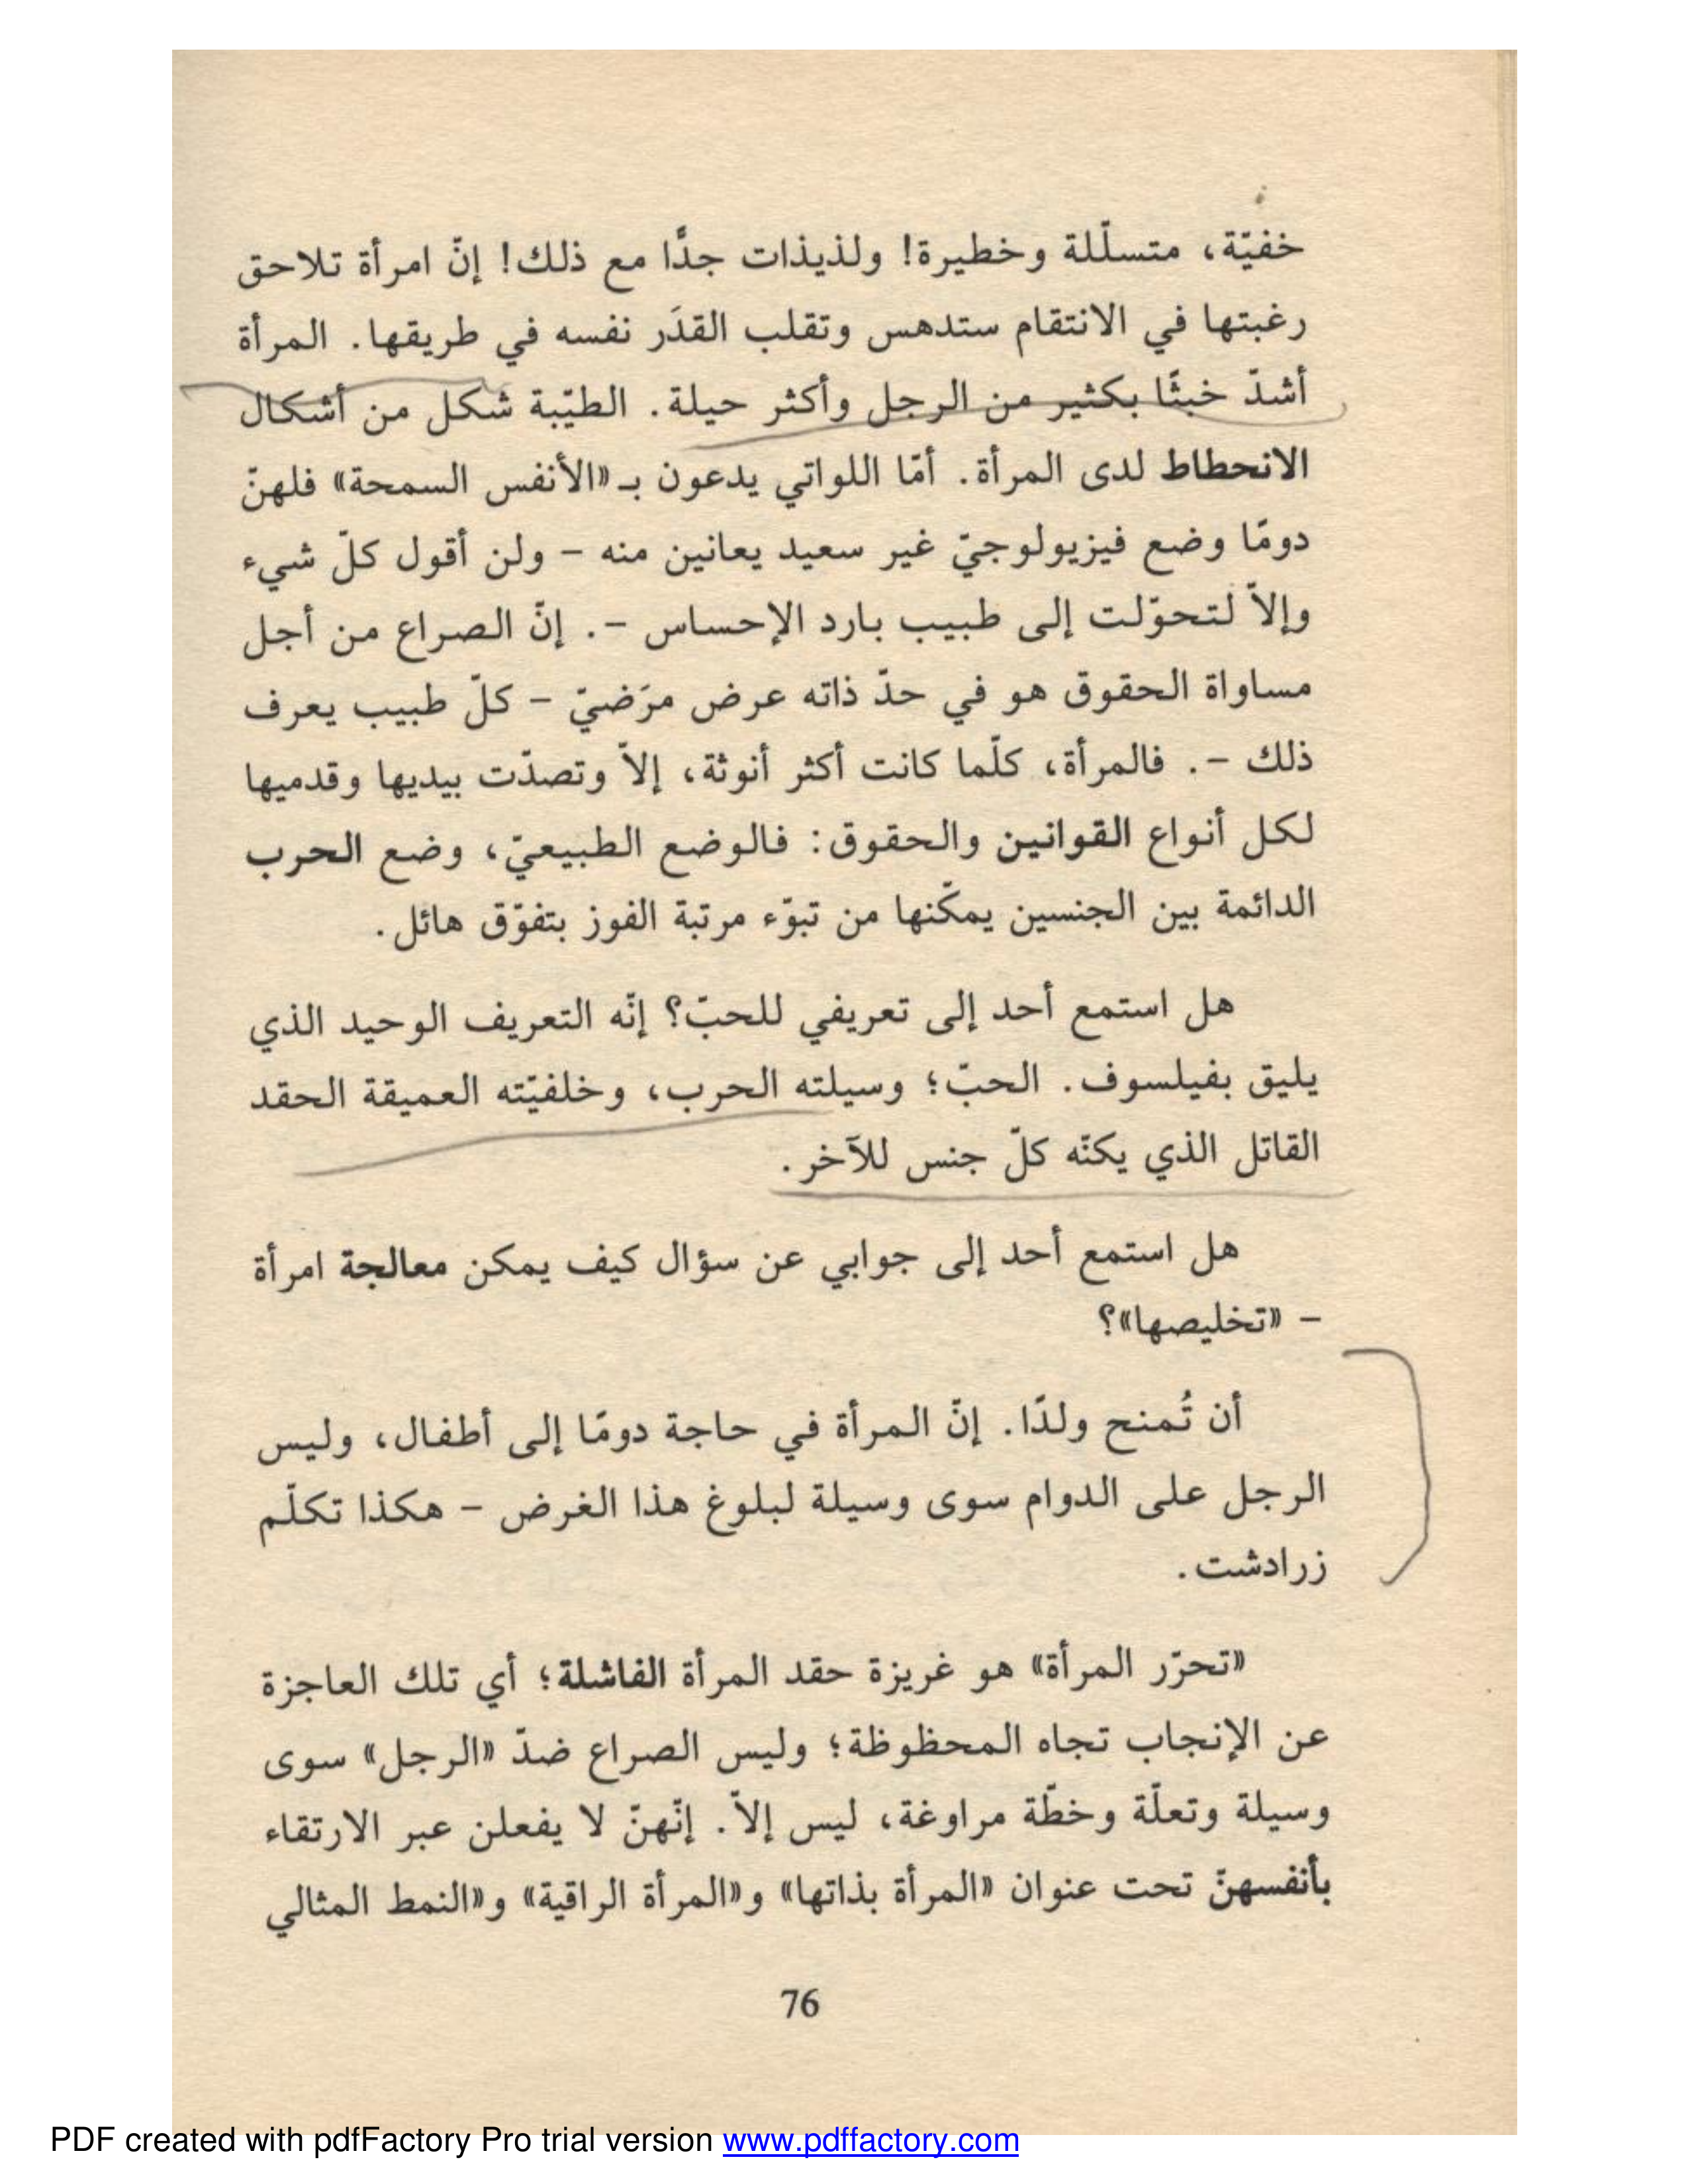 خفيّة، متسلّلة وخطيرة! ولذيذات جدًّا مع ذلك! إنّ امرأة تلاحق
رغبتها في الانتقام ستدهس وتقلب القدَر نفسه في طريقها. المرأة
أشدّ خبثًا بكثير من الرجل وأكثر حيلة. الطيّبة شكل من أشكال
الانحطاط لدى المرأة. أمّا اللواتي يدعون بـ«الأنفس السمحة» فلهنّ
دومًا وضع فيزيولوجيّ غير سعيد يعانين منه – ولن أقول كلّ شيء
وإلاّ لتحوّلت إلى طبيب بارد الإحساس –. إنّ الصراع من أجل
مساواة الحقوق هو في حدّ ذاته عرض مرَضيّ – كلّ طبيب يعرف
ذلك –. فالمرأة، كلّما كانت أكثر أنوثة، إلاّ وتصدّت بيديها وقدميها
لكل أنواع القوانين والحقوق: فالوضع الطبيعيّ، وضع الحرب
الدائمة بين الجنسين يمكّنها من تبوّء مرتبة الفوز بتفوّق هائل.
هل استمع أحد إلى تعريفي للحبّ؟ إنّه التعريف الوحيد الذي
يليق بفيلسوف. الحبّ؛ وسيلته الحرب، وخلفيّته العميقة الحقد
القاتل الذي يكنّه كلّ جنس للآخر.
هل استمع أحد إلى جوابي عن سؤال كيف يمكن معالجة امرأة
– «تخليصها»؟
أن تُمنح ولدًا. إنّ المرأة في حاجة دومًا إلى أطفال، وليس
الرجل على الدوام سوى وسيلة لبلوغ هذا الغرض – هكذا تكلّم
زرادشت.
«تحرّر المرأة» هو غريزة حقد المرأة الفاشلة؛ أي تلك العاجزة
عن الإنجاب تجاه المحظوظة؛ وليس الصراع ضدّ «الرجل» سوى
وسيلة وتعلّة وخطّة مراوغة، ليس إلاّ. إنّهنّ لا يفعلن عبر الارتقاء
بأنفسهنّ تحت عنوان «المرأة بذاتها» و«المرأة الراقية» و«النمط المثالي
76
PDF created with pdfFactory Pro trial version www.pdffactory.com